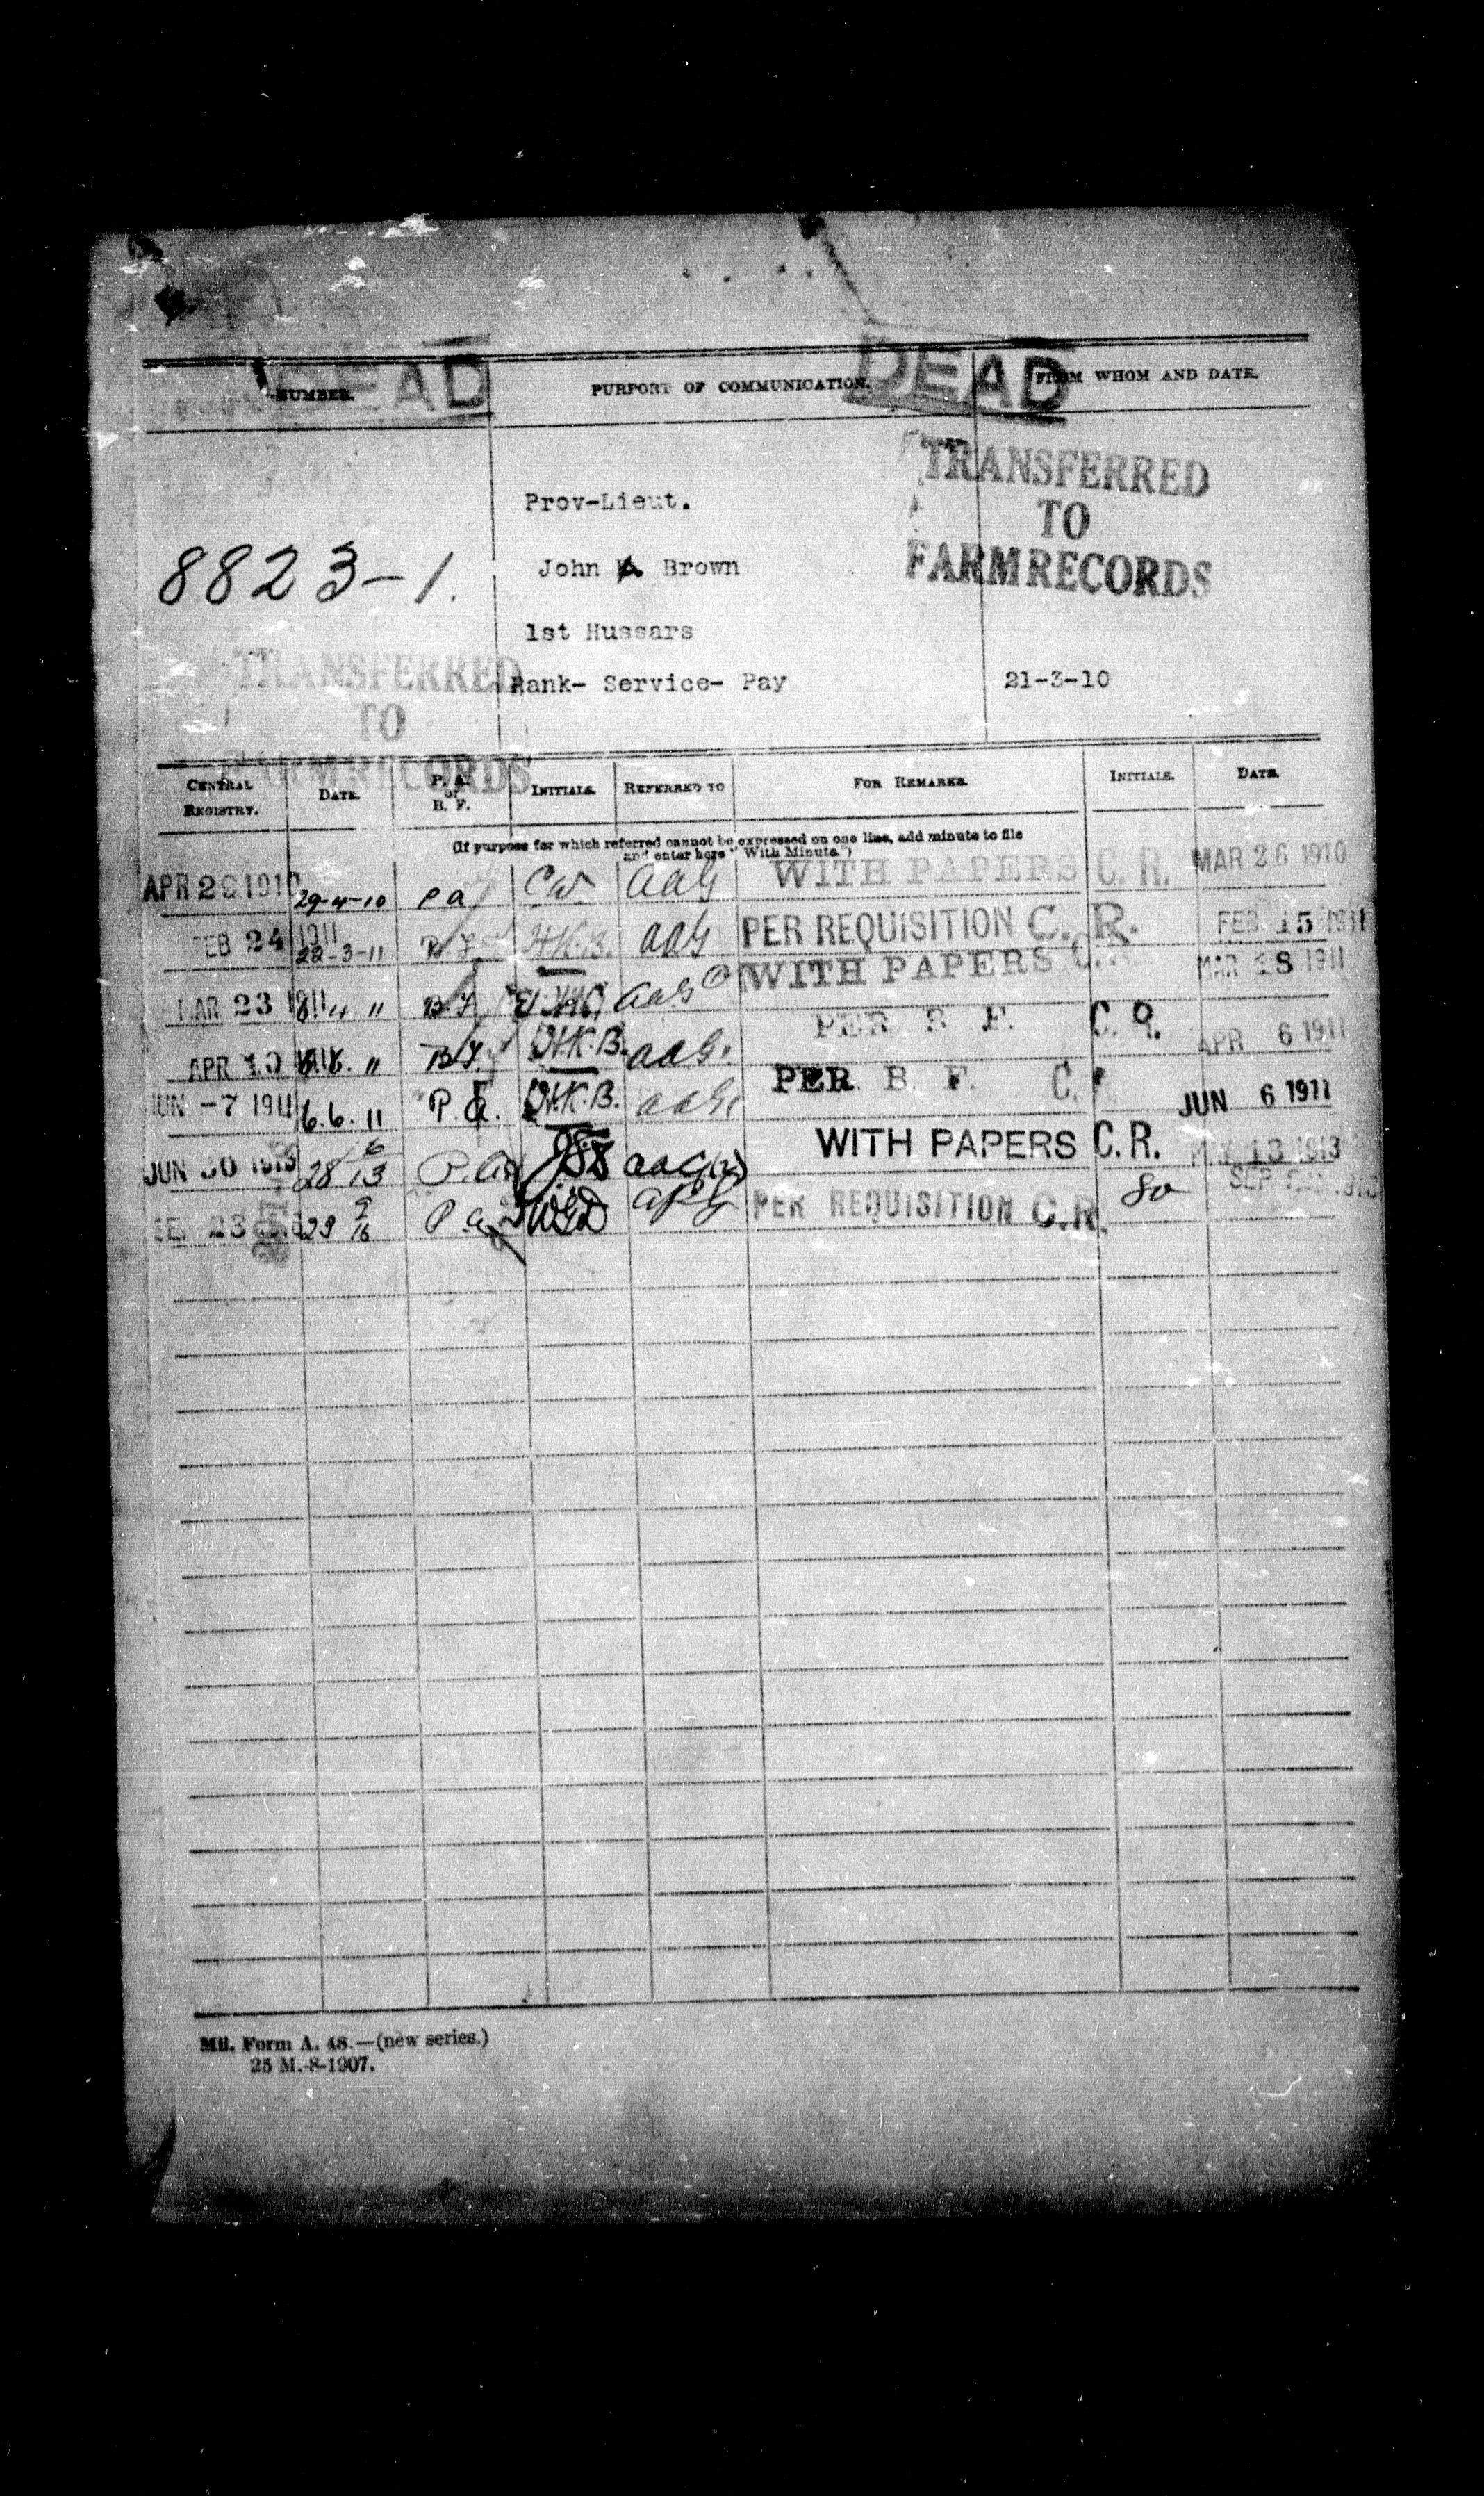 DEAD DEAD
NUMBER. PURPORT OF COMMUNICATION. FROM WHOM AND DATE.
TRANSFERRED
TO
FARM RECORDS
Prov-Lieut.
8823-1. John A. Brown
1st Hussars
TRANSFERRED
TO
FARM RECORDS
Rank- Service- Pay 21-3-10
CENTRAL REGISTRY. DATE. P. A. or B. F. INITIALS. REFERRED TO FOR REMARKS. INITIALS. DATE.
(If purpose for which referred cannot be expressed on one line, add minute to file
and enter here "With Minute.")
APR 1910 29-4-10 P a CW aag WITH PAPERS C. R. MAR 26 1910
FEB 24 1911 22-3-11 B.F. H.K.B. aag PER REQUISITION C. R. FEB 15 1911
MAR 23 1911 4 " B.F. aag WITH PAPERS C.R. MAR 18 1911
APR 10 " B.F. H.K.B. aag. PER B. F. C. R. APR 6 1911
JUN -7 1911 6.6.11 P.A. H.K.B. aag. PER B. F. C. JUN 6 1911
JUN 30 1913 28 6 13 P.A. aag(2) WITH PAPERS C.R. 13 1913
SEP 23 29 9 16 P a WGD apg PER REQUISITION C.R. SEP
Mil. Form A. 48.—(new series.)
25 M.-8-1907.